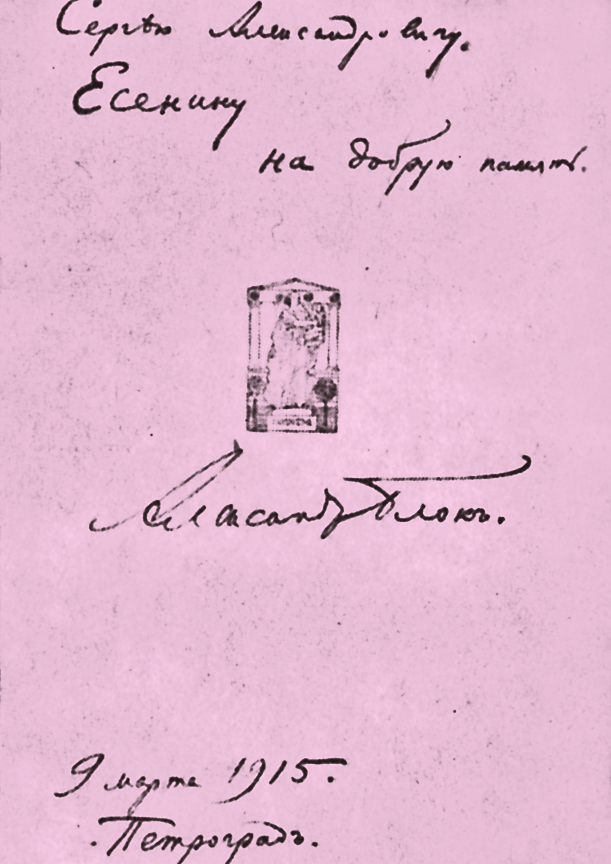 Сергѣю Александровичу.
Есенину
на добрую память.
Александръ Блокъ.
9 марта 1915.
Петроградъ.